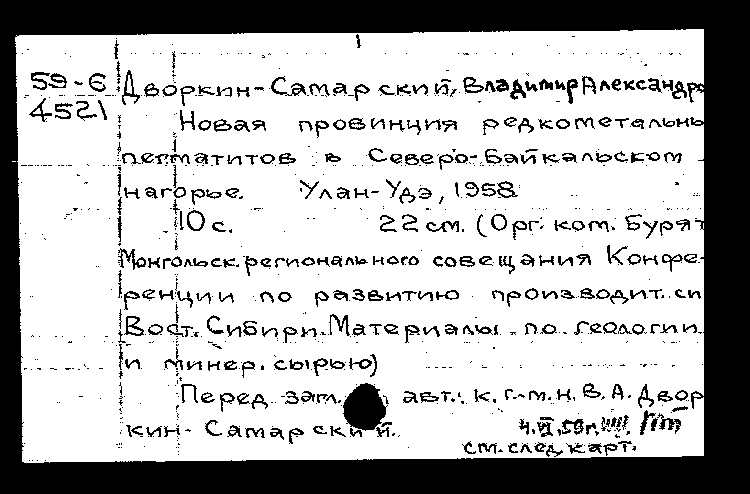 59-6 Дворкин-Самарский, Владимир Александро
4521 Новая провинция редкометальны
пегматитов в Северо-Байкальском
нагорье. Улан-Удэ, 1958
10 с. 22 см. (Орг. ком. Бурят
Монгольск. регионального совещания Конфе-
ренции по развитию производит. си
Вост. Сибири. Материалы по геологии
и минер. сырью)
Перед загл. авт.: к. г.-м. н. В. А. Двор
кин-Самарский. 4.VI.59г.
см. след. карт.